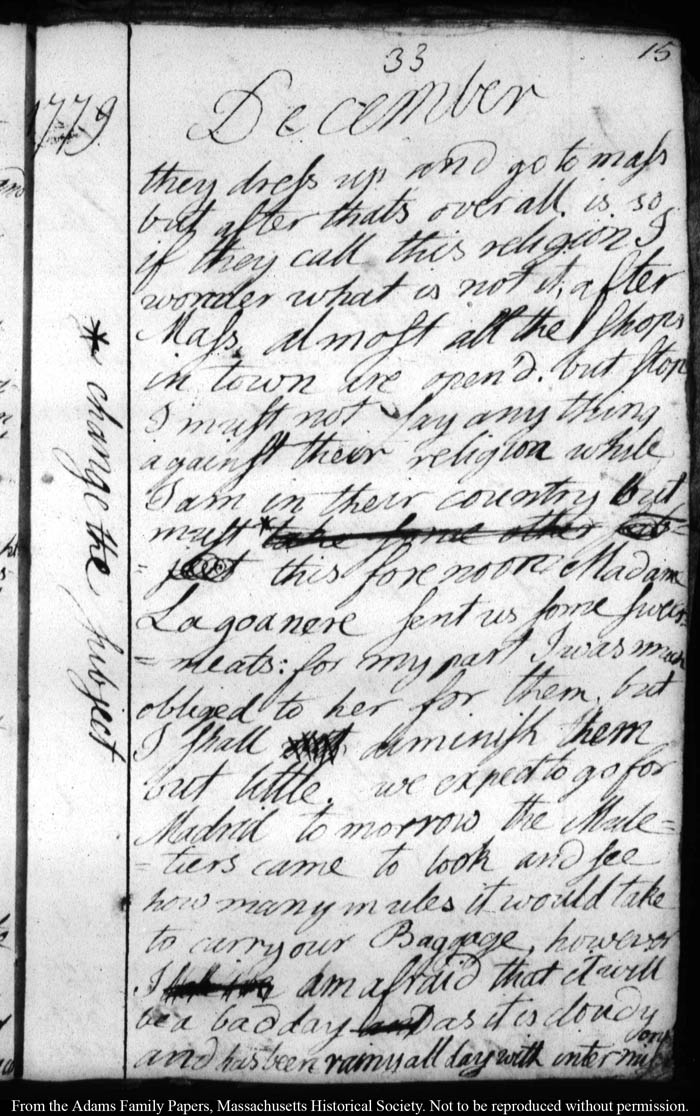 33
15
1779
December
they dress up and go to mass
but after thats over all is so
if they call this religion I
wonder what is not it, after
Mass almost all the Shops
in town are open'd. but stop
I must not say any thing
against their religion while
I am in their country but
must * take some other sub=
=ject this forenoon Madam
Lagoanere sent us some sweet
=meats: for my part I was much
obliged to her for them. but
I shall diminish them
but little. we expect to go for
Madrid to morrow the Mule=
=tiers came to look and see
how many mules it would take
to carry our Baggage, however
I am afraid that it will
be a bad day and as it is cloudy
and has been rainy all day with intermis
sons
* change the subject
From the Adams Family Papers, Massachusetts Historical Society. Not to be reproduced without permission.